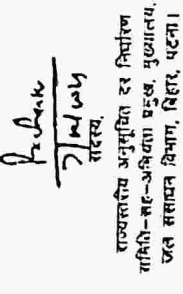 सदस्य,
राज्यस्तरीय अनुसूचित दर निर्धारण
समिति-सह-अभियंता प्रमुख, मुख्यालय,
जल संसाधन विभाग, बिहार, पटना।